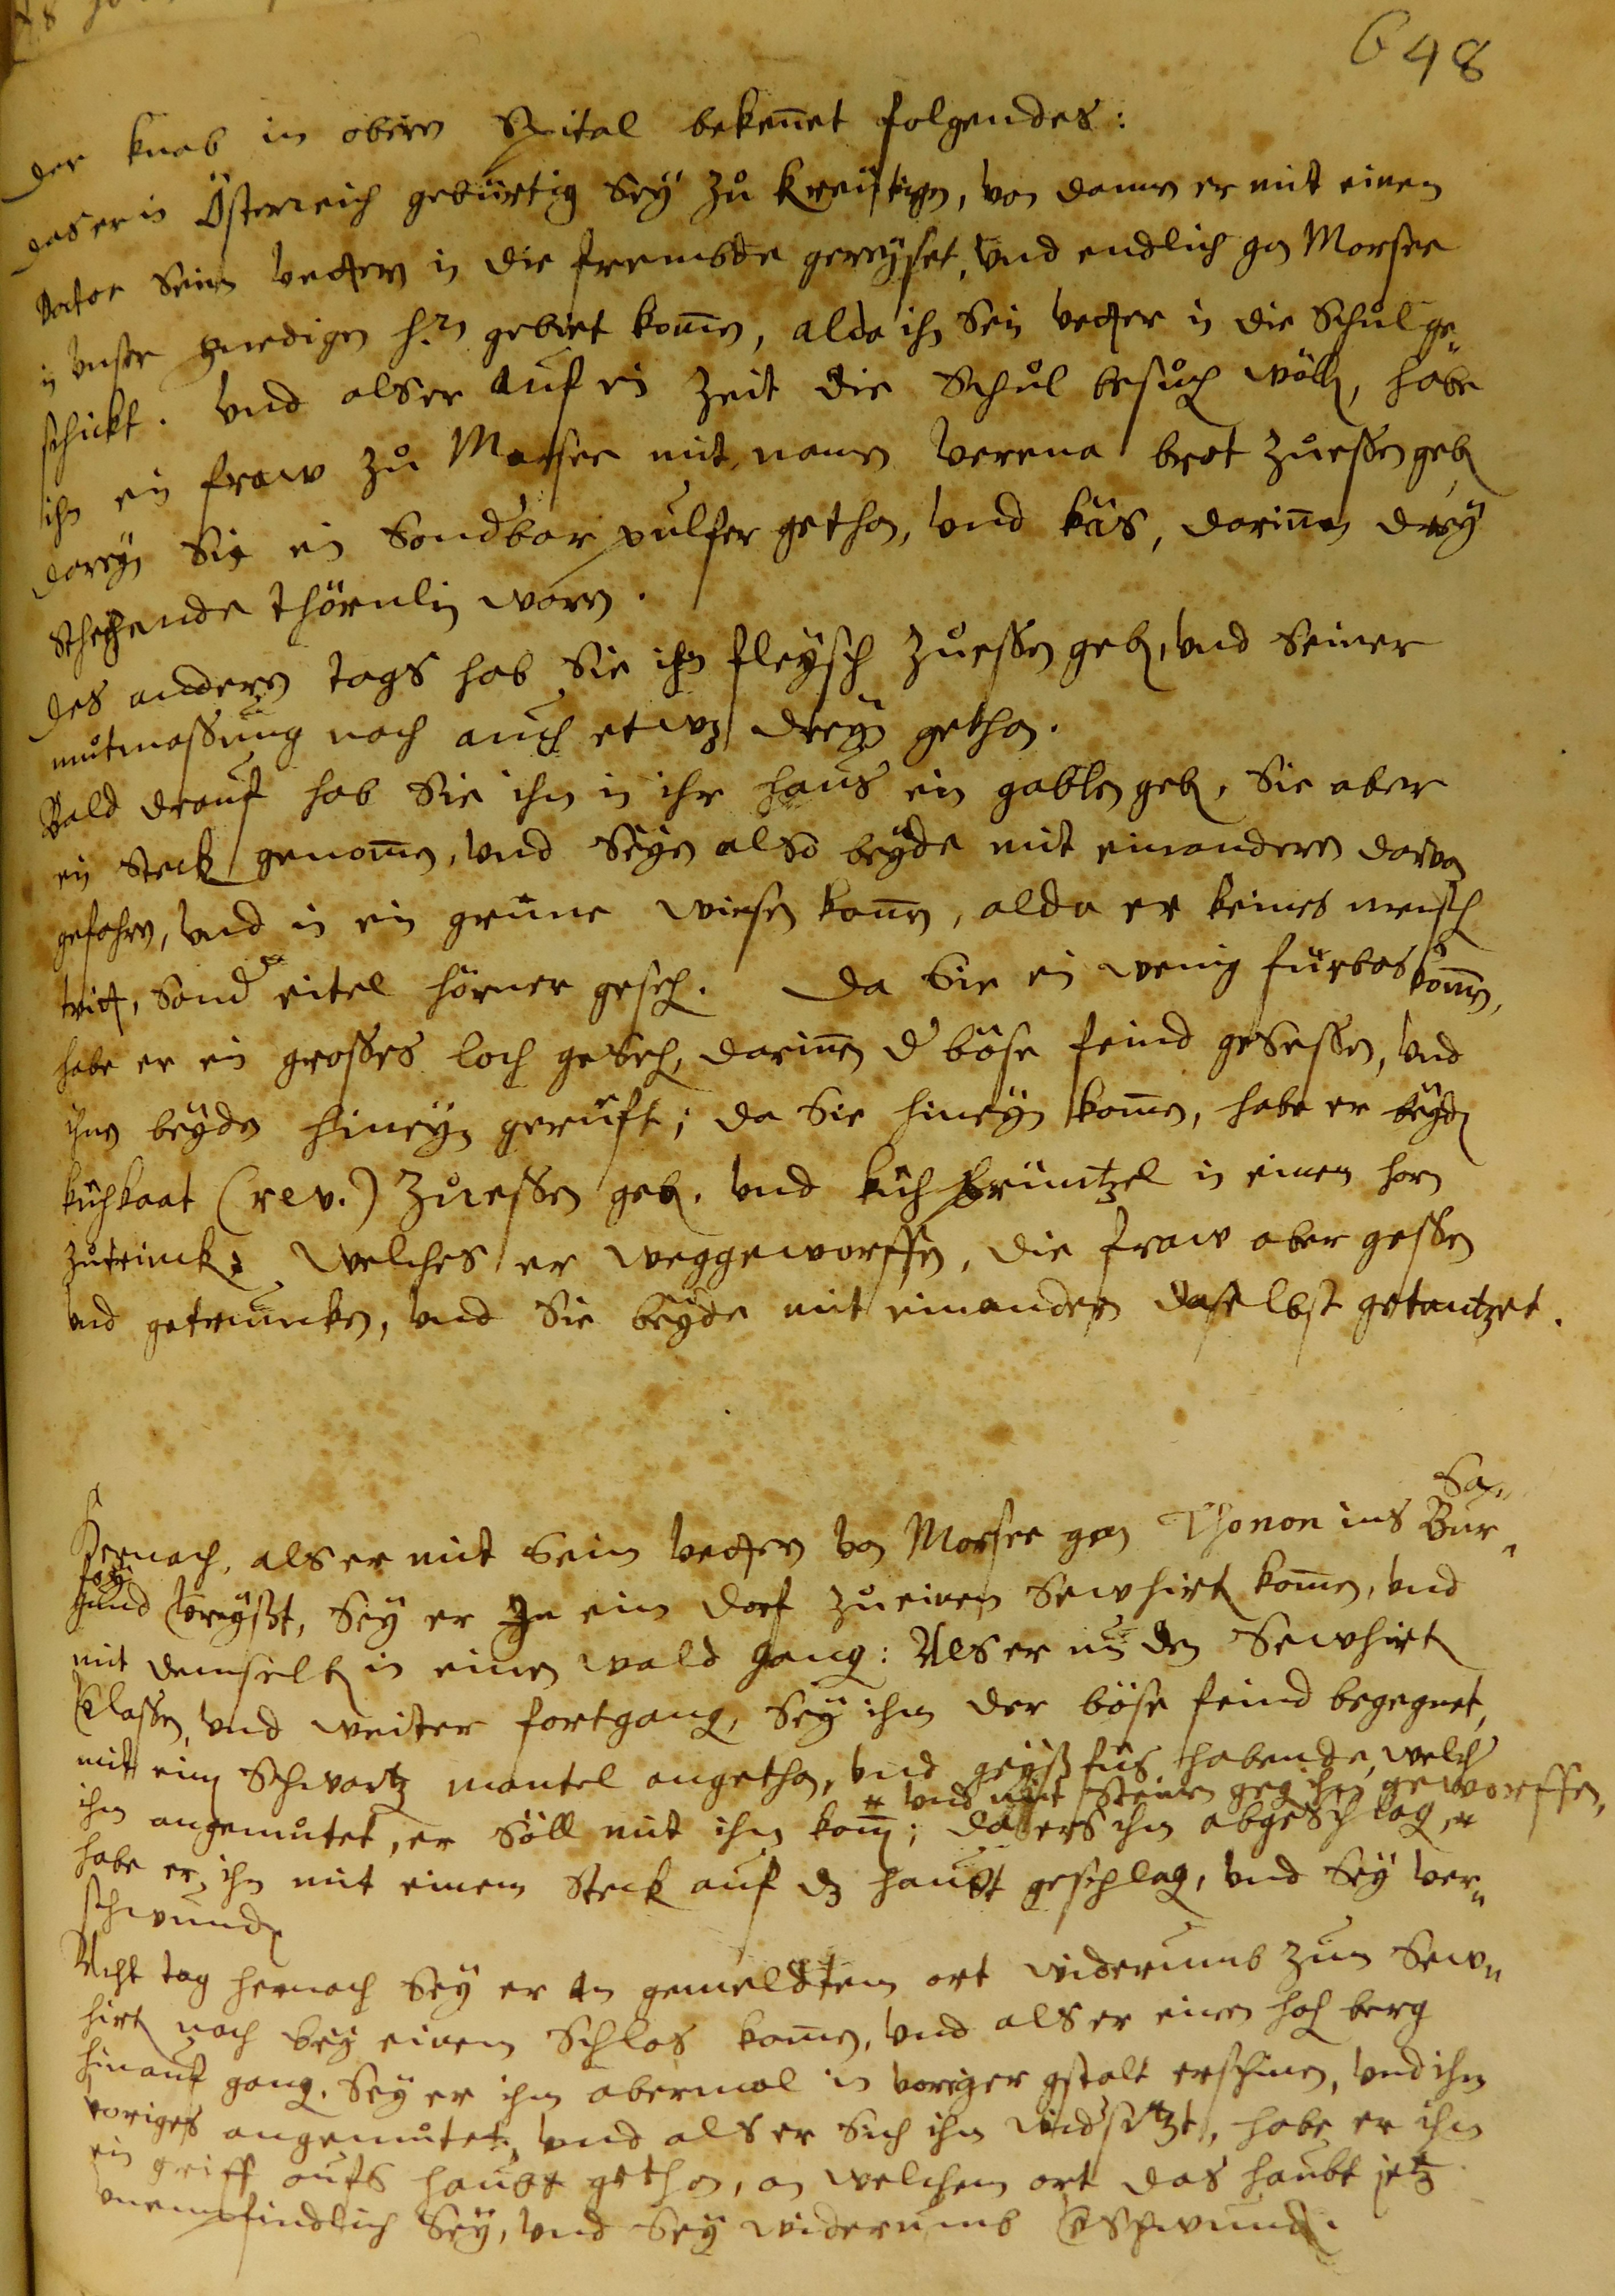 648
Der knab in obern Spital bekeñet folgendes:
Das er in Österreich gebürtig sey zů Kreützigen, von dannen er mit einem
Doctor seim vettern in die frembde gereyset, und endlich gen Morsee
in unser gnedigen h.rn gebiet kom̄en, alda ihn sein vetter in die Schůl ge„
schickt. Und als er auf ein zeit die Schůl besůchen wöllen, habe
ihm ein fraw zů Morsee mit namen Verena brot zůessen geben
dareyn sie ein sondbar pulfer gethan, und käs, dariñen drey
stechende thörnlin waren.
Des anderen tags hab sie ihm fleysch zůessen geben, und seiner
můtmassung nach auch etwz dreyn gethan.
Bald drauf hab sie ihm in ihr haus ein gablen geben, sie aber
ein stecken genom̄en, und seyen also beyde mit einanderen darvon
gefahren, und in ein grüne wiesen kom̄en, alda er keines mensch
tritt, sonder eitel hörner gesehen. Da sie ein wenig fürbas kom̄en,
habe er ein grosses loch gesehen, dariñen d' böse feind gesessen, und
ihnen beyden hineyn gerüft; da sie hineyn kom̄en, habe er beyden
kühkaat (rev.) zůessen geben, und küh brüntzel in einem horn
zůtrincken, welches er weggeworffen, die fraw aber gessen
und getruncken, und sie beyde mit einanderen daselbst getantzet.
Hernach, als er mit seim vettern von Morsee gen Thonon ins Bur„
Sa„
gund
foy
vereyßt, sey er In ein dorf zů einem sewhirten kom̄en, und
mit demselben in einen wald gangen: Als er nun den Sewhirten
verlassen, und weiter fortgangen, sey ihm der böse feind begegnet,
mit eim schwartzen mantel angethan, und geyßfüs habende, welcher
ihm angemůtet, er söll mit ihm kom̄en; da ers ihm abgeschlagen, *
* und mit steinen gegen ihm geworffen,
habe er ihn mit einem stecken auf dz haubt geschlagen, und sey ver„
schwunden
Acht tag hernach sey er An gemeldtem ort widerumb zum Sew„
hirten nach bey einem Schlos kom̄en, und als er einen hohen berg
hinauf gangen, sey er ihm abermal in voriger gstalt erschinen, und ihm
voriges angemůtet, und als er sich ihm widersetzt, habe er ihm
ein griff aufs haubt gethan, an welchem ort das haubt jetz
unempfindlich sey, und sey widerumb verschwunden.